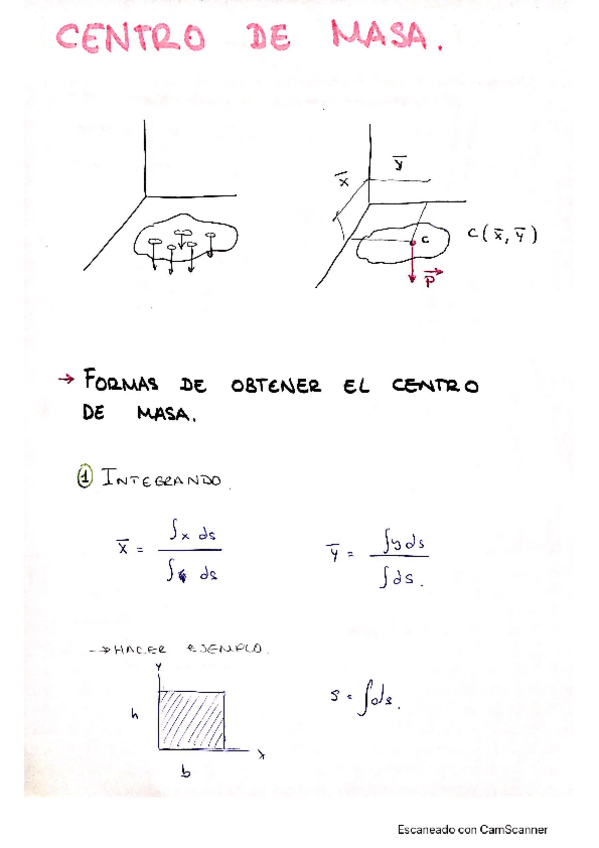 CENTRO DE MASA.
x̄
ȳ
C
C(x̄, ȳ)
P⃗
→ FORMAS DE OBTENER EL CENTRO
DE MASA.
① INTEGRANDO.
x̄ = ∫x ds / ∫ ds
ȳ = ∫y ds / ∫ds.
→ HACER EJEMPLO.
y
h
b
x
S = ∫ds.
Escaneado con CamScanner